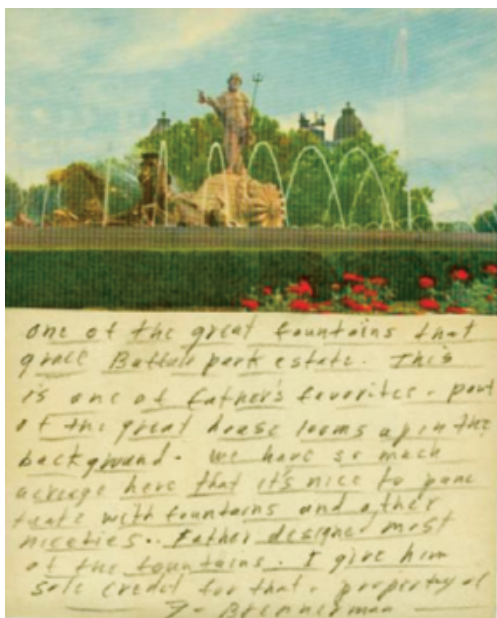 one of the great fountains that
grace Buffalo park estate. This
is one of father's favorites. part
of the great house looms up in the
background. we have so much
acreage here that it's nice to punc
tuate with fountains and other
niceties.. Father designed most
of the fountains. I give him
sole credit for that. property of
J. Brennerman